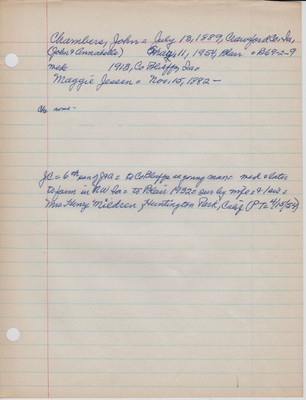 Chambers, John = July 18, 1889, Crawford Co. Ia,
(John & Annabelle) May 11, 1954, Blair = B692-9
md: 1913, Co Bluffs, Ia =
Maggie Jessen = Nov. 15, 1882 -
Ch: none -
JC = 6th son of J&A = to Co Bluffs as young man = med = later
to farm in NW Ia = to Blair 1932 = sur by wife = & 1 sis =
Mrs Henry Mildren, Huntington Park, Calif (PT = 4/15/54)